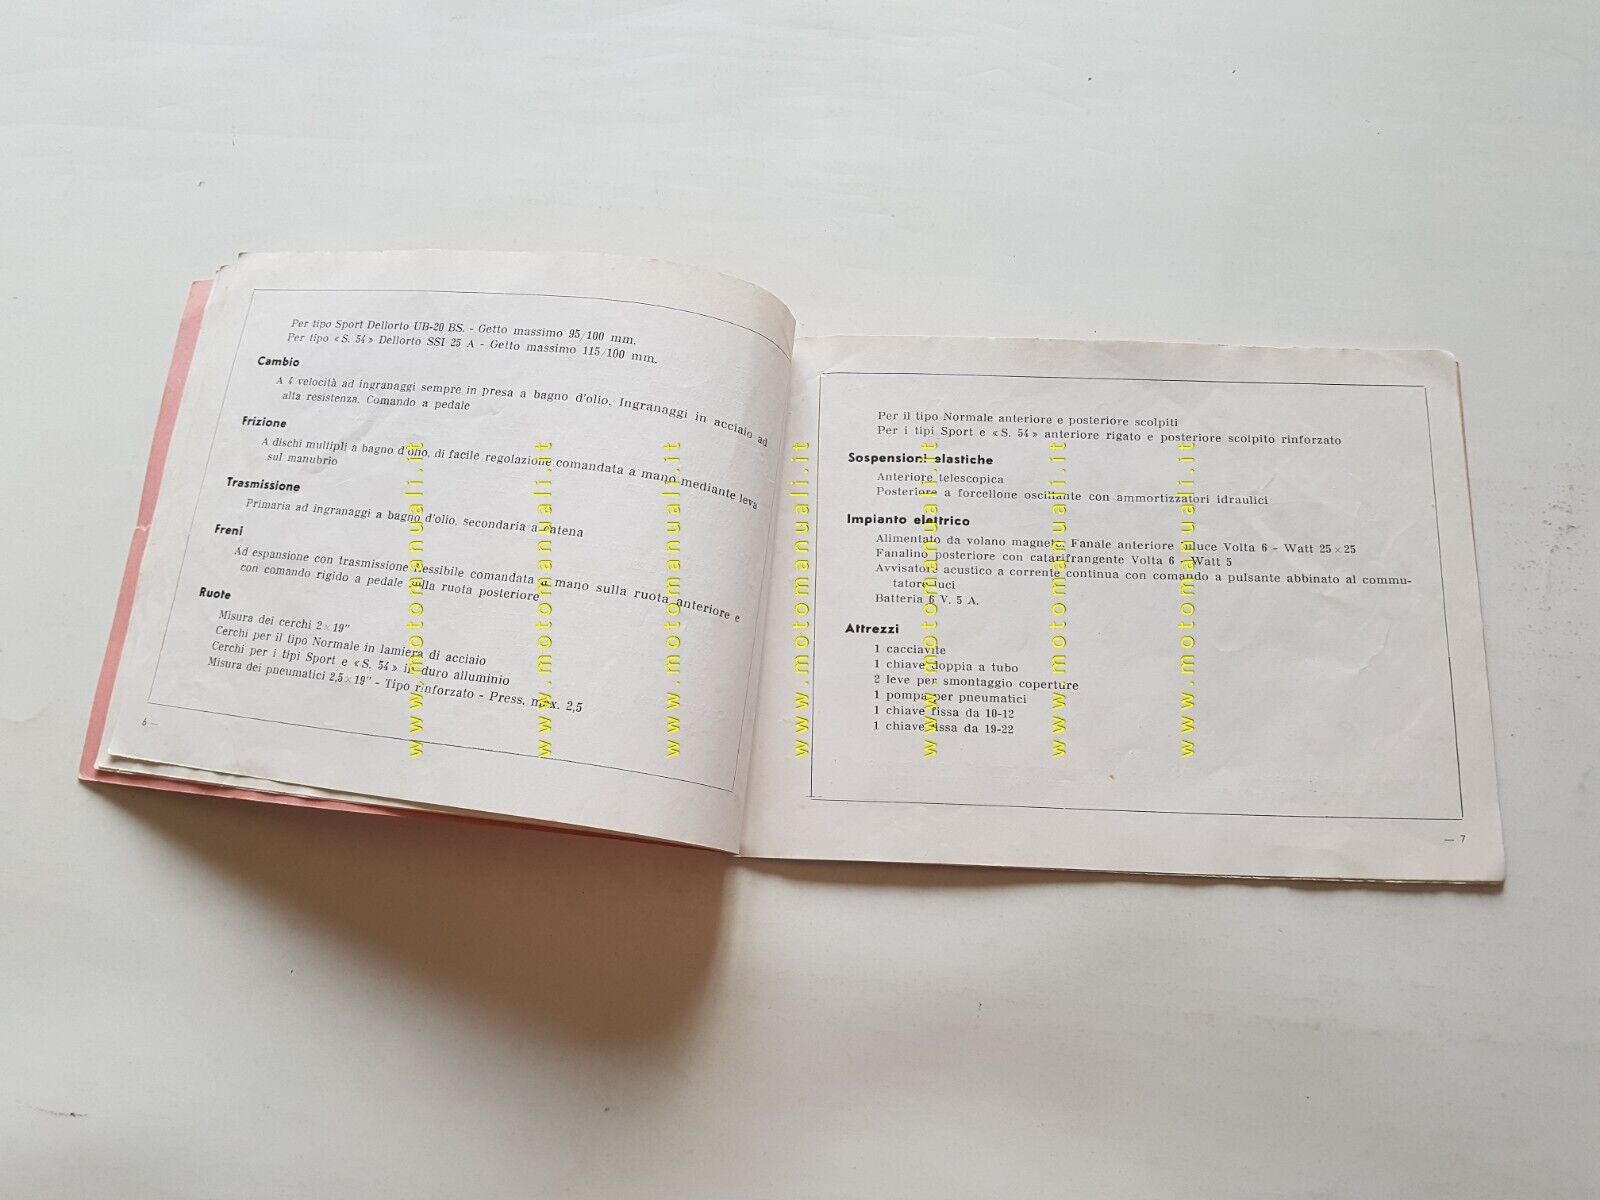 Per tipo Sport Dellorto UB-20 BS. - Getto massimo 95/100 mm.
Per tipo « S. 54 » Dellorto SSI 25 A - Getto massimo 115/100 mm.
Cambio
A 4 velocità ad ingranaggi sempre in presa a bagno d'olio. Ingranaggi in acciaio ad
alta resistenza. Comando a pedale
Frizione
A dischi multipli a bagno d'olio, di facile regolazione comandata a mano mediante leva
sul manubrio
Trasmissione
Primaria ad ingranaggi a bagno d'olio, secondaria a catena
Freni
Ad espansione con trasmissione flessibile comandata a mano sulla ruota anteriore e
con comando rigido a pedale sulla ruota posteriore
Ruote
Misura dei cerchi 2×19"
Cerchi per il tipo Normale in lamiera di acciaio
Cerchi per i tipi Sport e « S. 54 » in duro alluminio
Misura dei pneumatici 2,5×19" - Tipo rinforzato - Press. max. 2,5
6 —
Per il tipo Normale anteriore e posteriore scolpiti
Per i tipi Sport e « S. 54 » anteriore rigato e posteriore scolpito rinforzato
Sospensioni elastiche
Anteriore telescopica
Posteriore a forcellone oscillante con ammortizzatori idraulici
Impianto elettrico
Alimentato da volano magnete. Fanale anteriore biluce Volta 6 - Watt 25×25
Fanalino posteriore con catarifrangente Volta 6 - Watt 5
Avvisatore acustico a corrente continua con comando a pulsante abbinato al commu-
tatore luci
Batteria 6 V. 5 A.
Attrezzi
1 cacciavite
1 chiave doppia a tubo
2 leve per smontaggio coperture
1 pompa per pneumatici
1 chiave fissa da 10-12
1 chiave fissa da 19-22
— 7
www.motomanuali.it
www.motomanuali.it
www.motomanuali.it
www.motomanuali.it
www.motomanuali.it
www.motomanuali.it
www.motomanuali.it